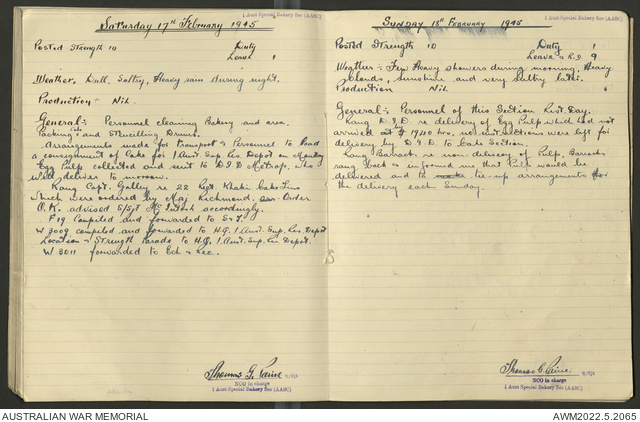 1 Aust Special Bakery Sec (AASC)
Saturday 17th February 1945
Posted Strength 10 Duty
Leave 1
Weather, Dull, Sultry, Heavy rain during night.
Production - Nil.
General:- Personnel cleaning Bakery and area.
Packing and Stencilling Drums.
Arrangements made for transport & Personnel to load
a consignment of Cake for 1 Aust. Sup. Res. Depot on Monday
Egg Pulp collected and sent to D.I.D Metrop, who
will deliver to morrow.
Rang Capt. Galley re 22 Kgt Khaki Cake Tins
which were ordered by Maj Richmond. Order
O.K. advised S/Sgt McIntosh accordingly.
F 19 Compiled and forwarded to S & T.
W 3009 compiled and forwarded to H.Q. 1 Aust. Sup. Res. Depot
Location & Strength Parade to H.Q. 1 Aust. Sup. Res. Depot.
W 3011 forwarded to Ech & Rec.
Thomas G. Paine S/Sgt
NCO in charge
1 Aust Special Bakery Sec (AASC)
1 Aust Special Bakery Sec (AASC)
Sunday 18th February 1945
Posted Strength 10 Duty 1
Leave & R.D. 9
Weather:- Few Heavy showers during morning, Heavy
Clouds, Sunshine and very sultry later.
Production Nil.
General:- Personnel of this Section Rest Day.
Rang D.I.D re delivery of Egg Pulp which had not
arrived at 1940 hrs, instructions were left for
delivery by D.I.D to Cake Section.
Rang Barrack re non-delivery of Pulp, Barrack
rang back & informed me that Pulp would be
delivered and to tie-up arrangements for
the delivery each Sunday.
Thomas G. Paine S/Sgt
NCO in charge
1 Aust Special Bakery Sec (AASC)
AUSTRALIAN WAR MEMORIAL
AWM2022.5.2065